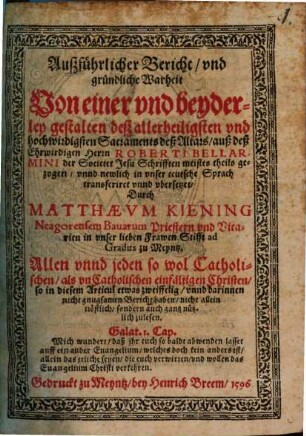 1.
Außführlicher Bericht/ vnd
gründliche Warheit
Von einer vnd beyder-
ley gestalten deß allerheiligsten vnd
hochwirdigsten Sacraments deß Altars/ auß deß
Ehrwirdigen Herrn ROBERTI BELLAR-
MINI der Societet Jesu Schrifften meistes theils ge-
zogen/ vnnd newlich in vnser teutsche Sprach
transferiret vnnd vbersetzt/
Durch
MATTHÆVM KIENING
Neagorensem Bavarum Priestern vnd Vica-
rien in vnser lieben Frawen Stifft ad
Gradus zu Meyntz.
Allen vnnd jeden so wol Catholi-
schen/ als vn Catholischen einfältigen Christen/
so in diesem Articul etwas zweiffelig/ vnnd darinnen
nicht gnugsamen Bericht haben/ nicht allein
nöstlich/ sondern auch gantz nütz-
lich zulesen.
Galat. 1. Cap.
Mich wundert/ daß jhr euch so baldt abwenden lasset
auff ein ander Euangelium/ welches doch kein anders ist/
allein das etliche seyen/ die euch verwirren/ vnd wöllen das
Euangelium Christi verkehren.
Gedruckt zu Meyntz/ bey Henrich Breem/ 1596